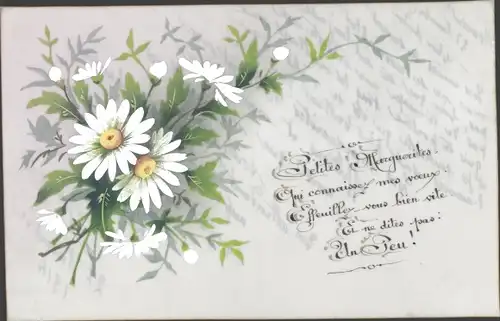 Petites Marguerites.
Qui connaissez mes vœux.
Effeuillez vous bien vite
Et ne dites pas:
Un Peu!